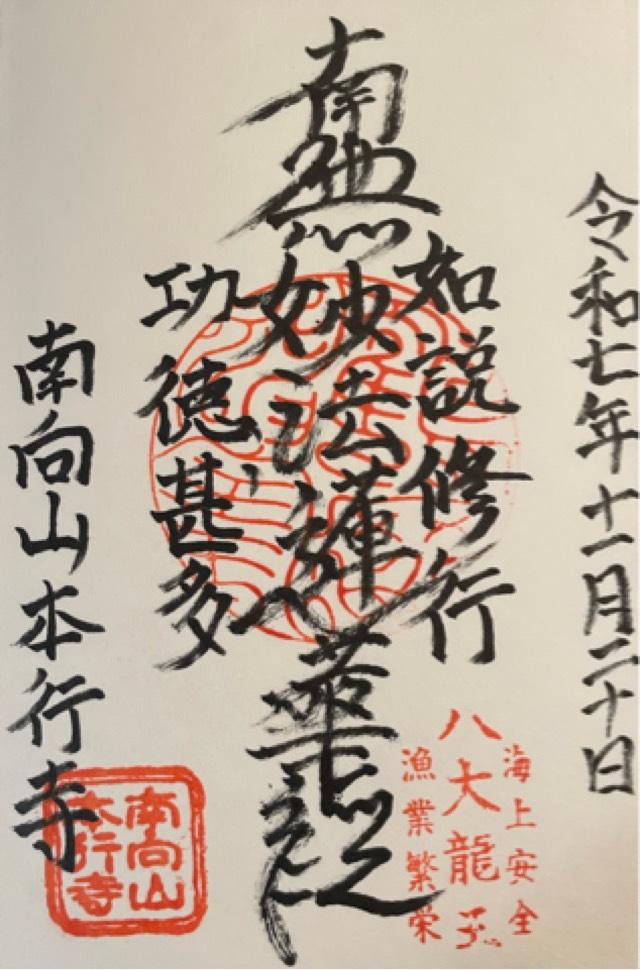 令和七年十一月二十日
如説修行
南無妙法蓮華経
功徳甚多
南向山本行寺
海上安全
八大龍王
漁業繁栄
南向山
本行寺